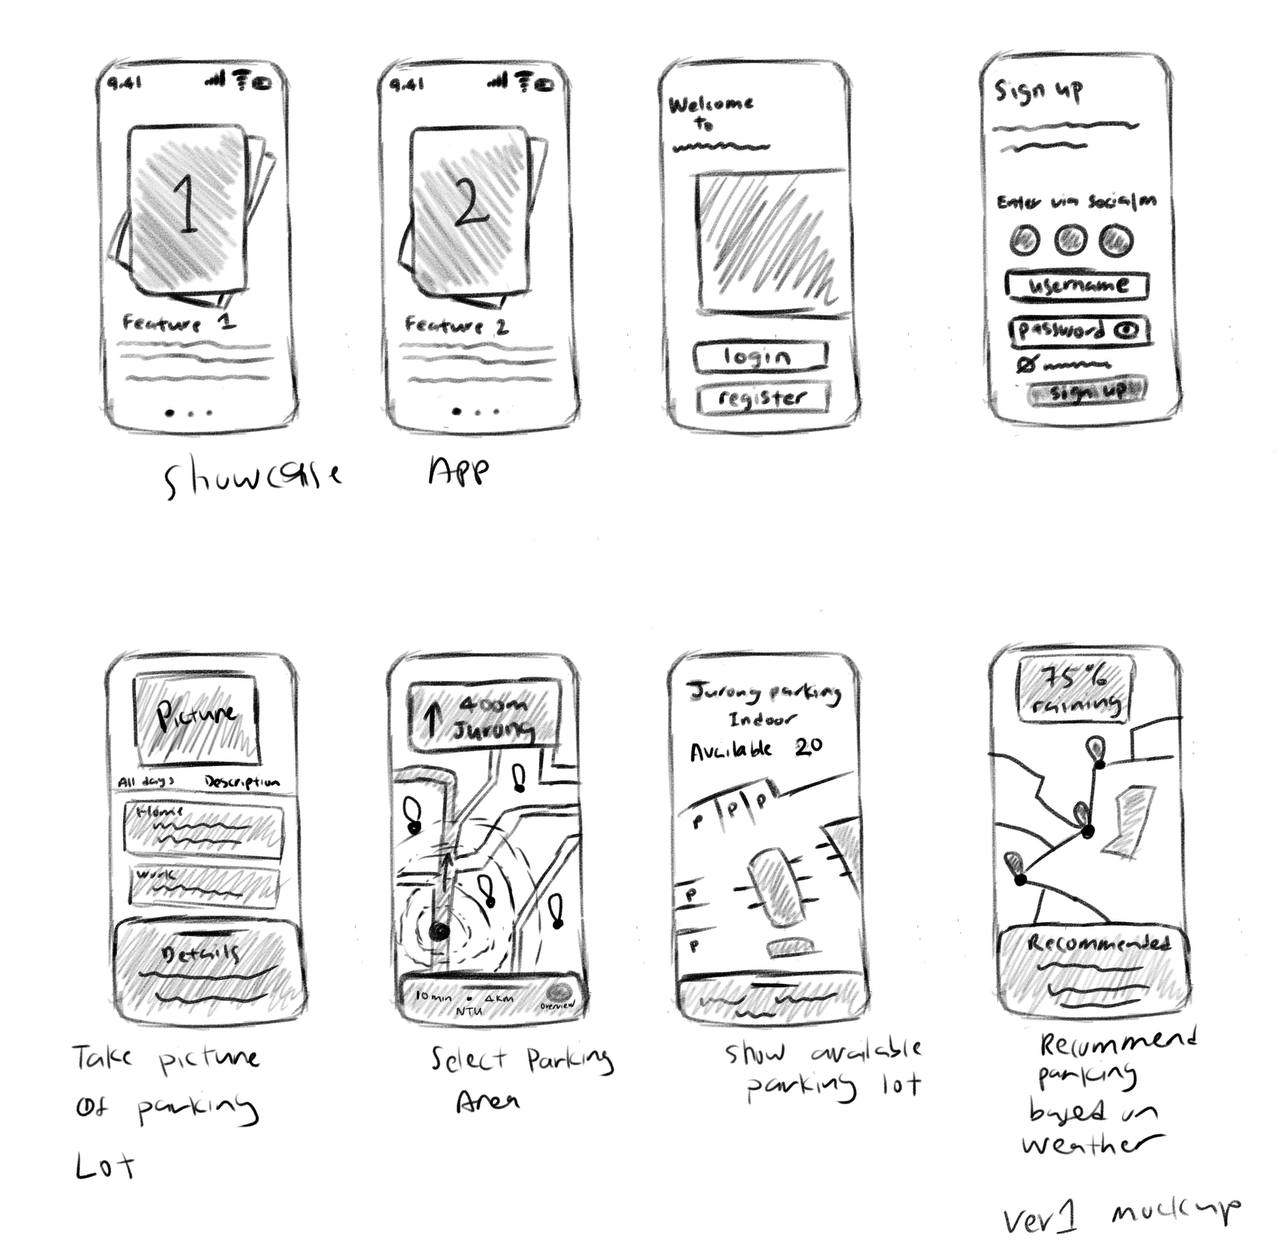 9:41
1
Feature 1
9:41
2
Feature 2
Showcase App
Welcome
to
login
register
Sign up
Enter via social m
username
password
sign up
Picture
All days Description
Home
work
Details
Take picture
Of parking
Lot
400m
Jurong
10min • 4km
NTU
Overview
Select Parking
Area
Jurong parking
Indoor
Available 20
P P P
P
P
Show available
parking lot
75%
raining
Recommended
Recommend
parking
based on
weather
ver1 mockup